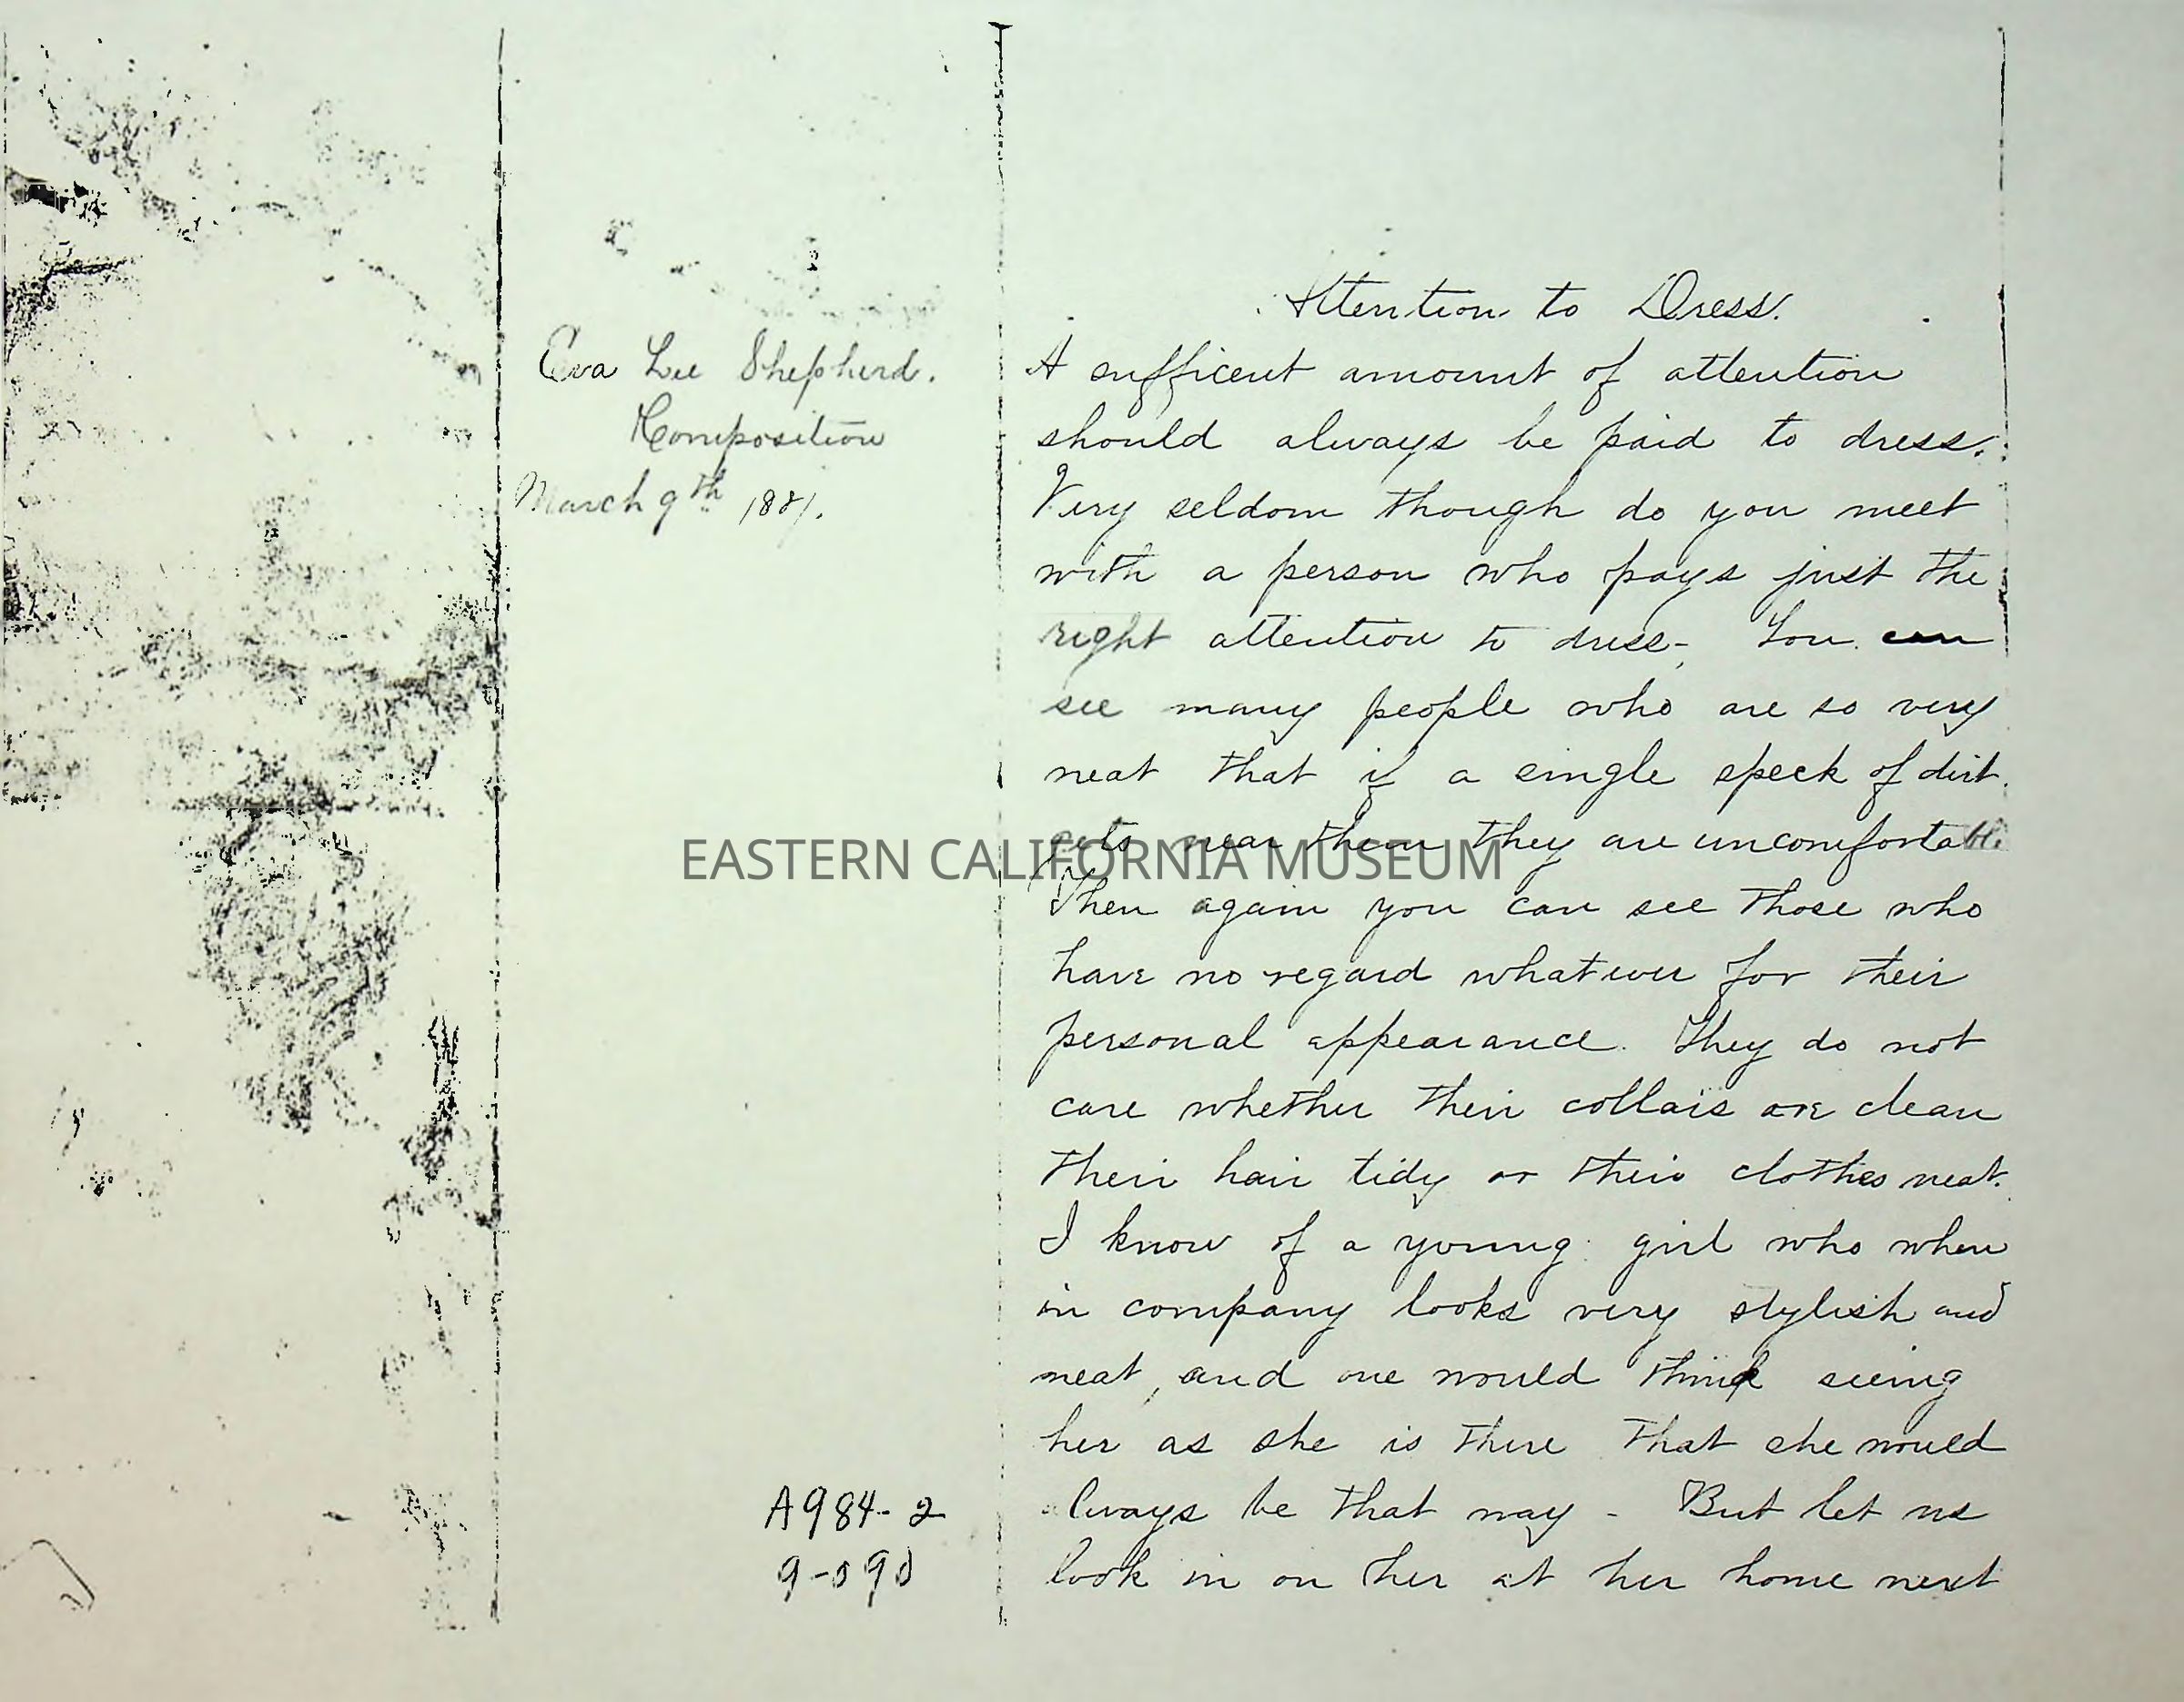 Eva Lee Shepherd.
Composition
March 9th 1881.
A984-2
9-090
Attention to Dress.
A sufficent amount of attention
should always be paid to dress.
Very seldom though do you meet
with a person who pays just the
right attention to dress- You can
see many people who are so very
neat that if a single speck of dirt
gets near them they are uncomfortable
Then again you can see those who
have no regard whatever for their
personal appearance. They do not
care whether their collars are clean
their hair tidy or their clothes neat.
I know of a young girl who when
in company looks very stylish and
neat, and one would think seeing
her as she is there that she would
always be that way - But let us
look in on her at her home next
EASTERN CALIFORNIA MUSEUM